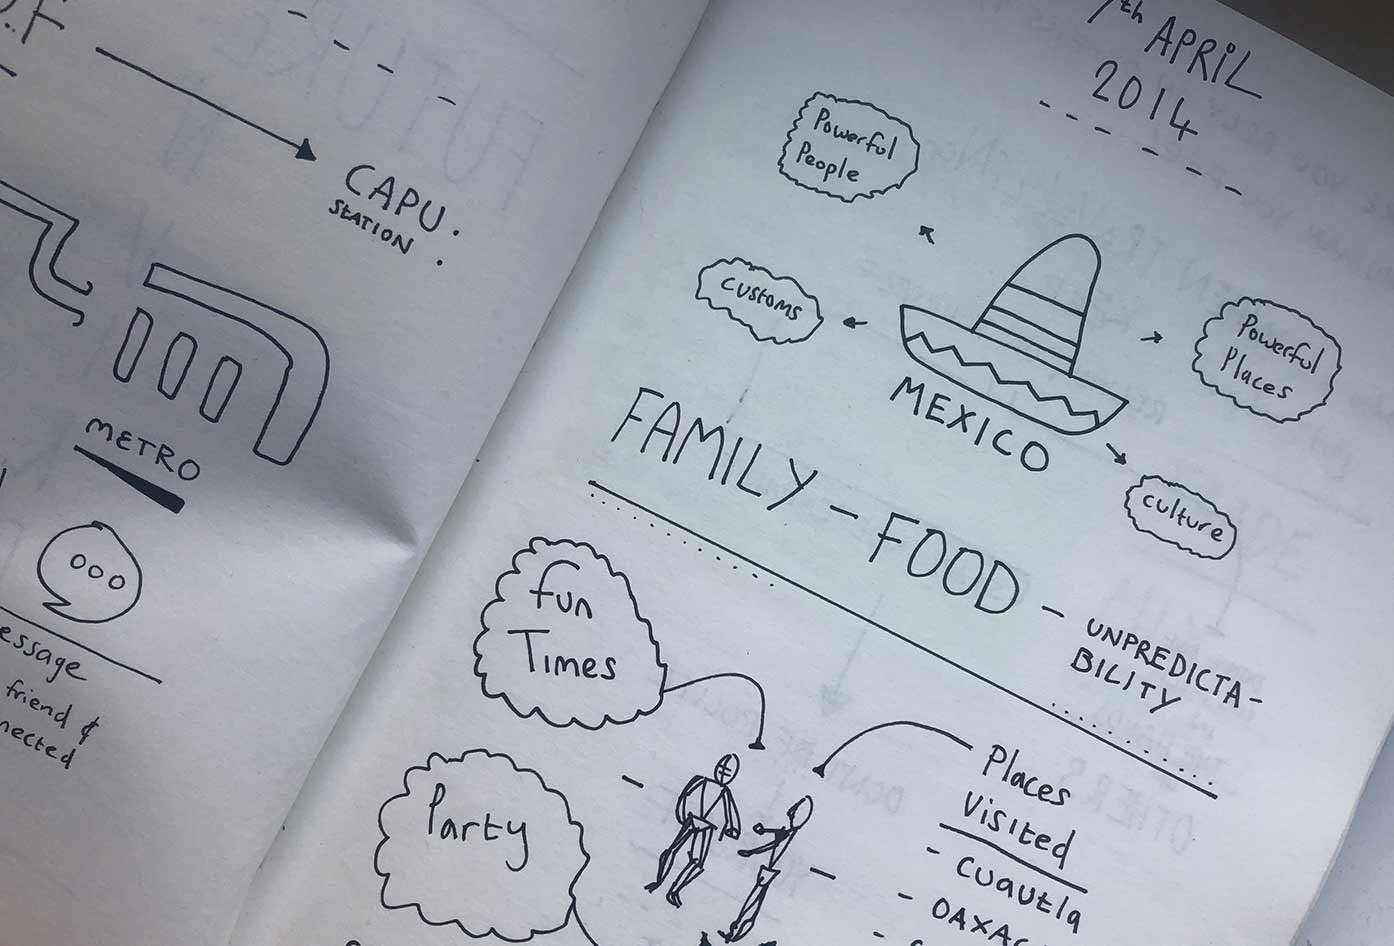 CAPU.
STATION.
METRO
essage
friend &
nected
7th APRIL
2014
Powerful
People
Customs
Powerful
Places
MEXICO
culture
FAMILY - FOOD - UNPREDICTA-
BILITY
fun
Times
Party
Places
Visited
- Cuautla
- OAXAC